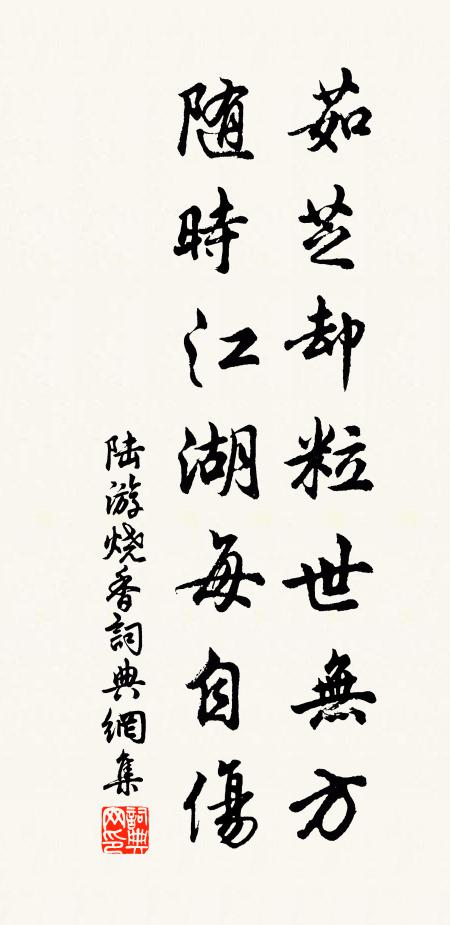 茹芝却粒世無方
随時江湖每自傷
陆游烧香詞典網集
詞典网印